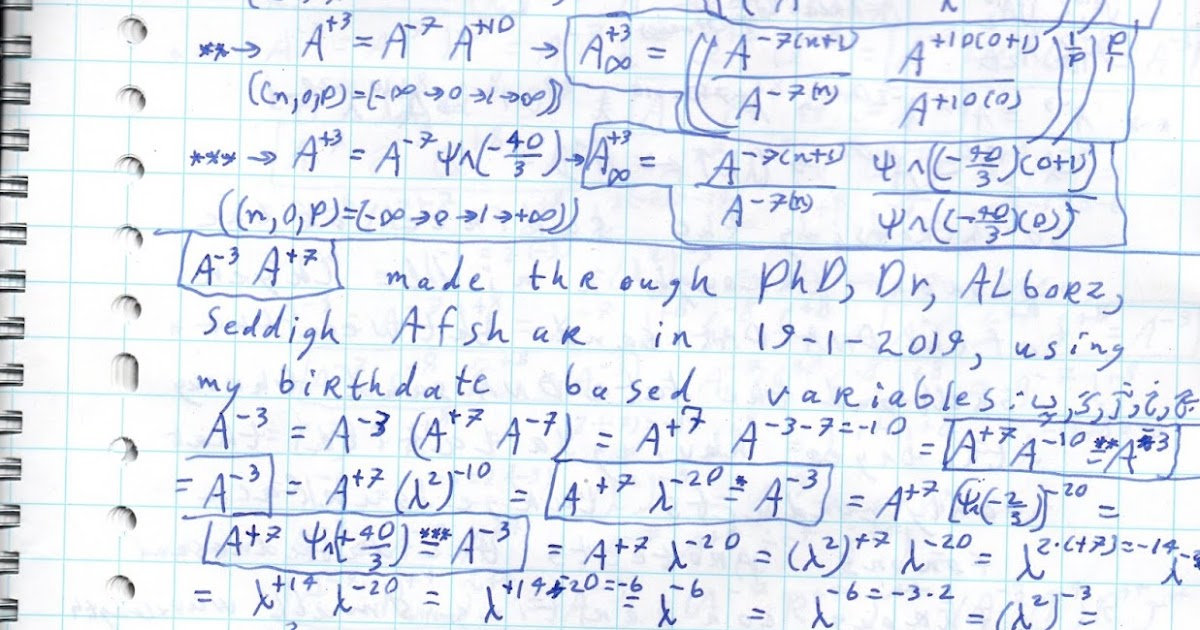 **→ A⁺³ = A⁻⁷ A⁺¹⁰ → A∞⁺³ = ((A^-7(n+1) / A^-7(n) A^+10(0+1) / A^+10(0))^1/P)^P/1
((n,0,P)=[-∞→0→1→∞])
***→ A⁺³ = A⁻⁷ Ψ^(-40/3) → A∞⁺³ = A^-7(n+1) / A^-7(n) Ψ^((-40/3)(0+1)) / Ψ^((-40/3)(0))
((n,0,P)=[-∞→0→1→+∞])
A⁻³ A⁺⁷ made through PhD, Dr, ALborz,
Seddigh Afshar in 19-1-2019, using
my birthdate based variables:
A⁻³ = A⁻³ (A⁺⁷ A⁻⁷) = A⁺⁷ A^-3-7=-10 = A⁺⁷ A⁻¹⁰ =** A⁻³
= A⁻³ = A⁺⁷ (λ²)⁻¹⁰ = A⁺⁷ λ⁻²⁰ =* A⁻³ = A⁺⁷ [Ψ^(-2/3)]⁻²⁰ =
A⁺⁷ Ψ^(+40/3) =*** A⁻³ = A⁺⁷ λ⁻²⁰ = (λ²)⁺⁷ λ⁻²⁰ = λ^2·(+7)=-14
= λ⁺¹⁴ λ⁻²⁰ = λ^+14-20=-6 = λ⁻⁶ = λ^-6=-3·2 = (λ²)⁻³ =